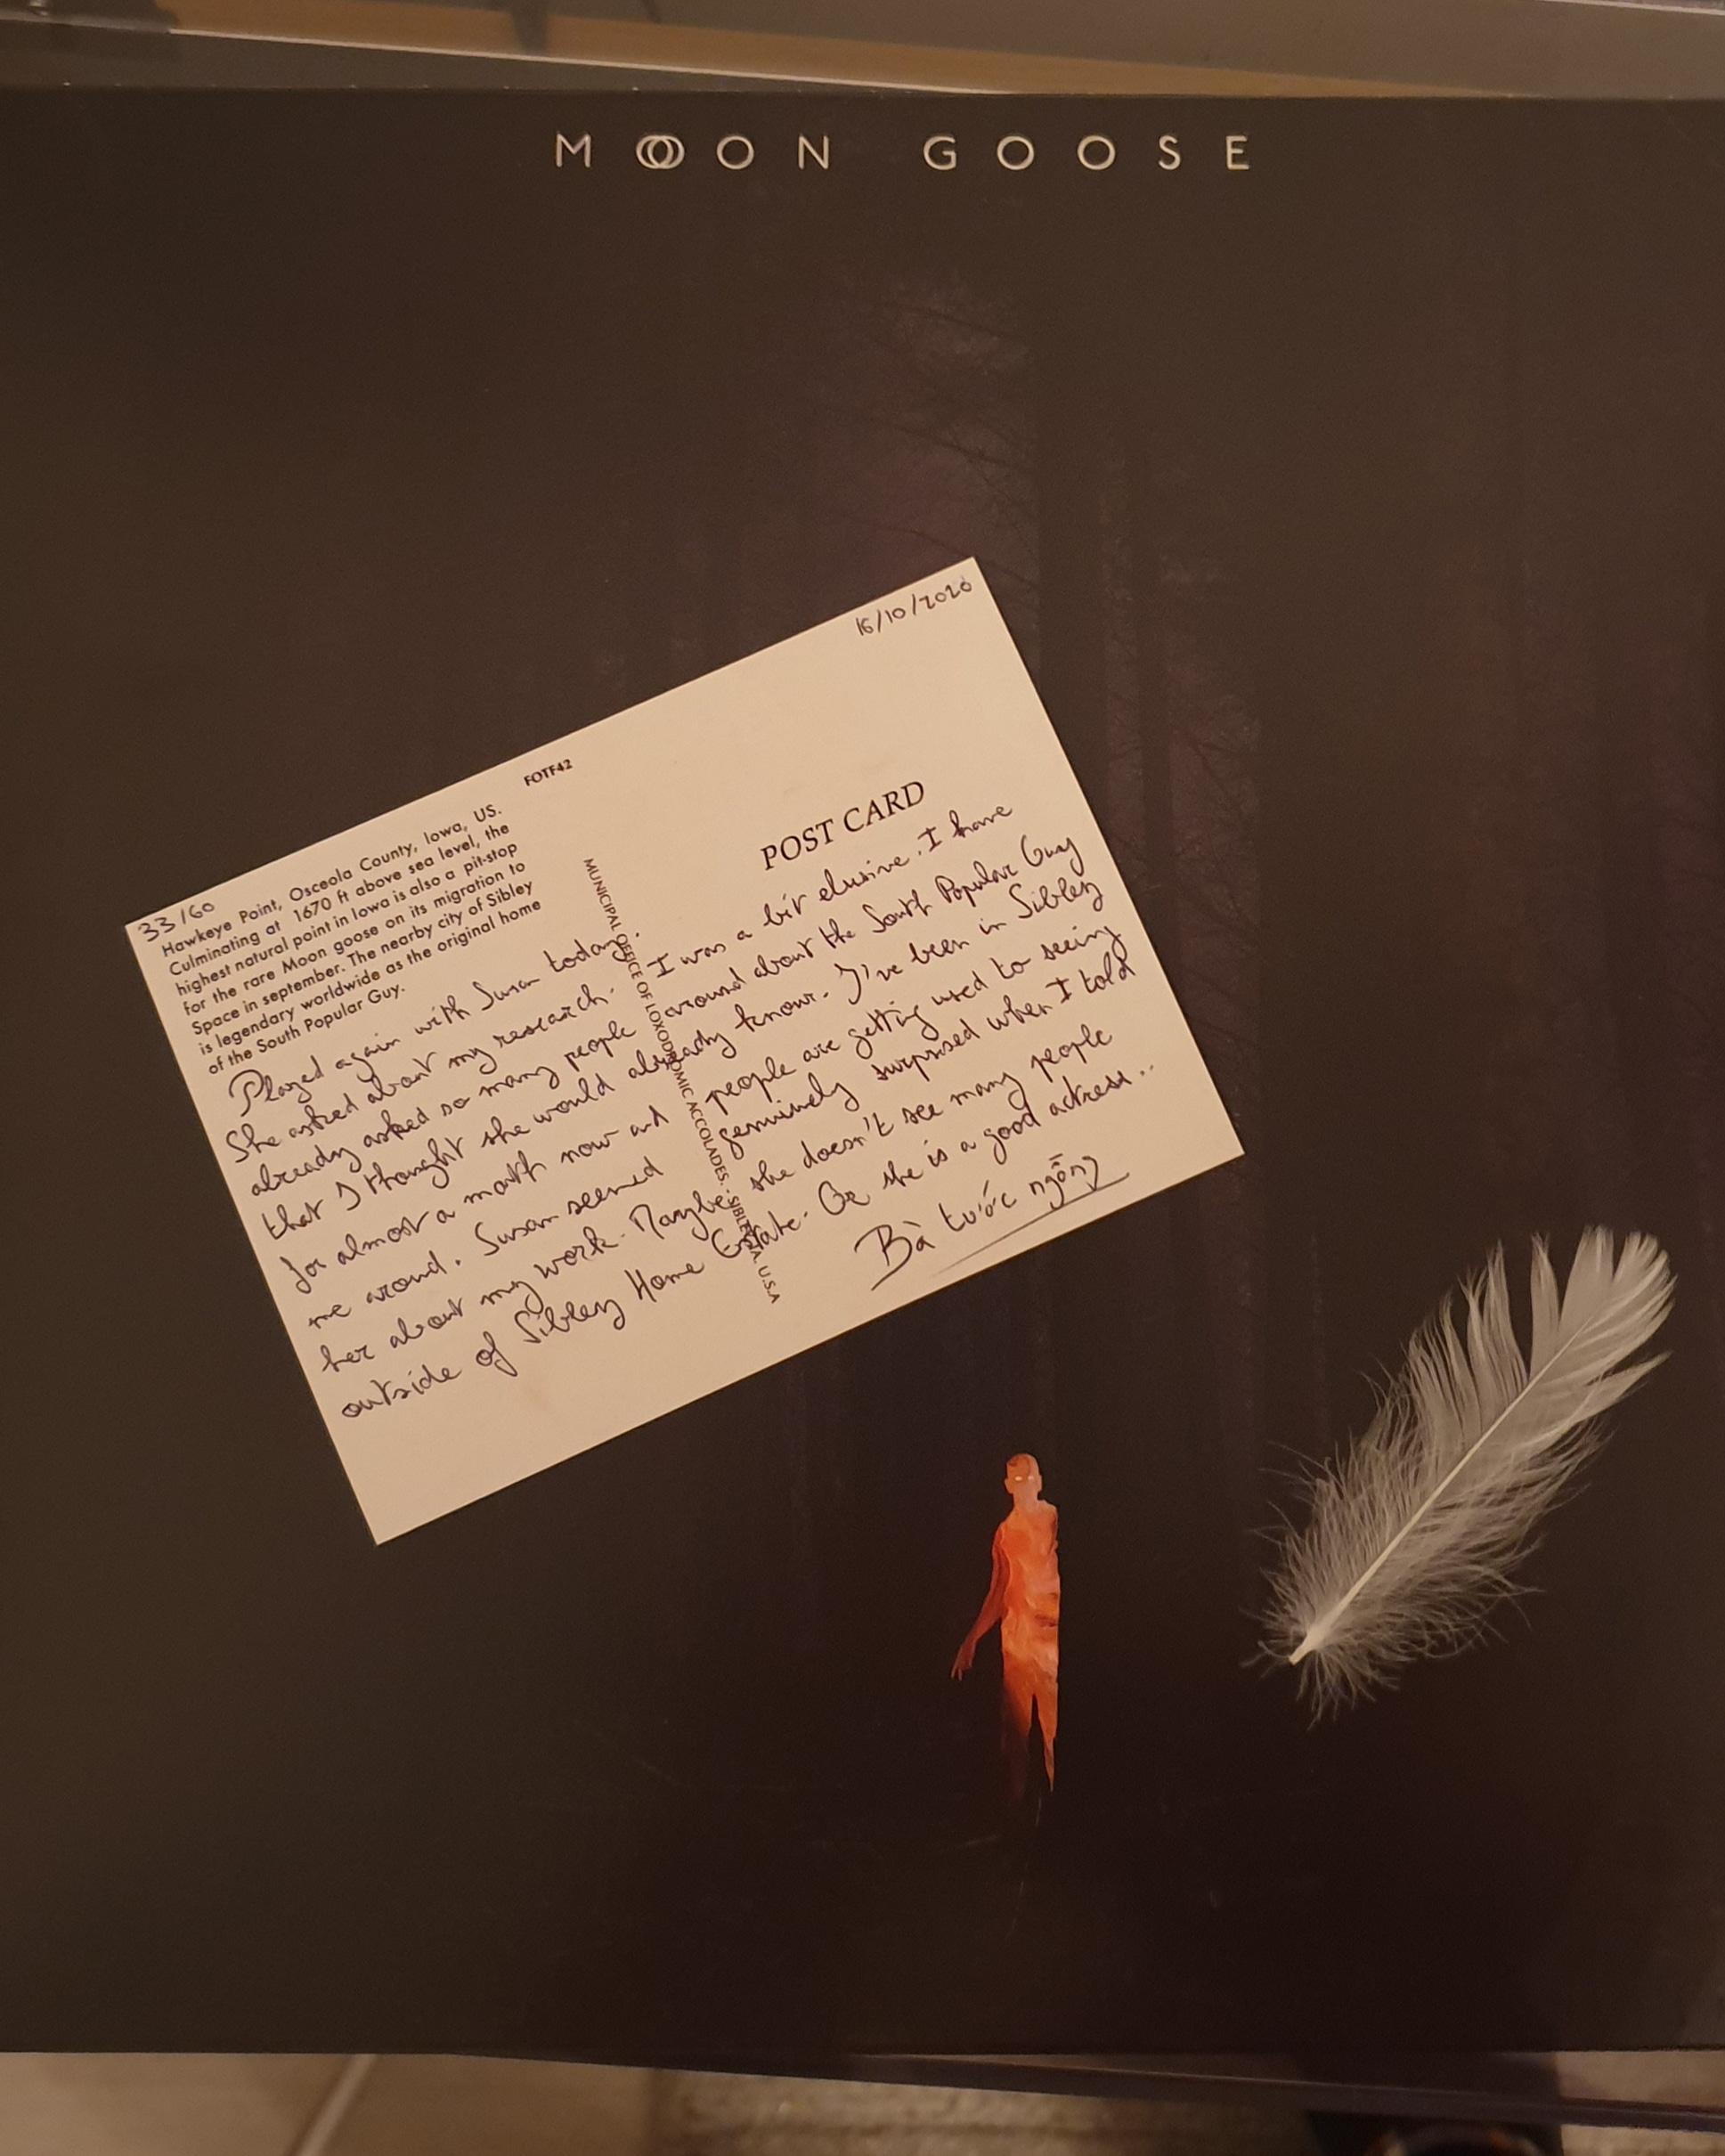 MOON GOOSE
16/10/2020
FOTF42
33/60
Hawkeye Point, Osceola County, Iowa, US.
Culminating at 1670 ft above sea level, the
highest natural point in Iowa is also a pit-stop
for the rare Moon goose on its migration to
Space in september. The nearby city of Sibley
is legendary worldwide as the original home
of the South Popular Guy.
POST CARD
MUNICIPAL OFFICE OF LOXODROMIC ACCOLADES. SIBLEY, U.S.A
Played again with Susan today.
She asked about my research. I was a bit elusive. I have
already asked so many people around about the South Popular Guy
that I thought she would already know. I've been in Sibley
for almost a month now and people are getting used to seeing
me around. Susan seemed genuinely surprised when I told
her about my work. Maybe she doesn't see many people
outside of Sibley Home Estate. Or she is a good actress..
Bà tước ngỗng